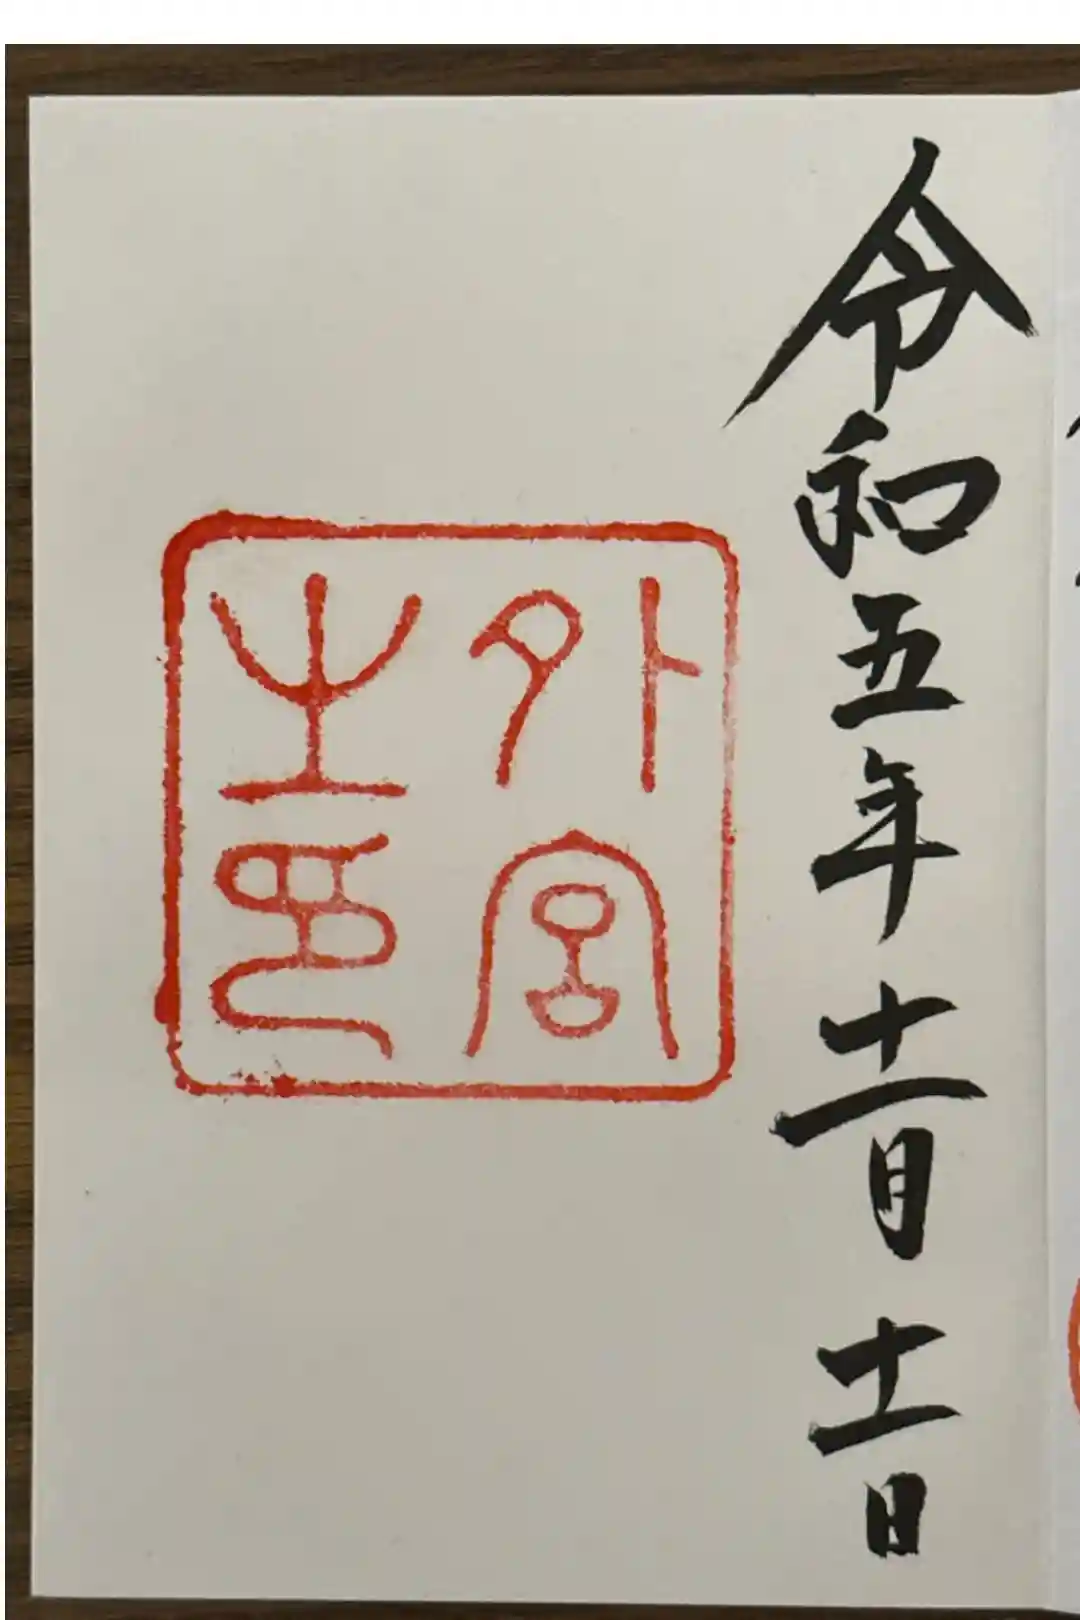 令和五年十一月十一日
外宮
之印